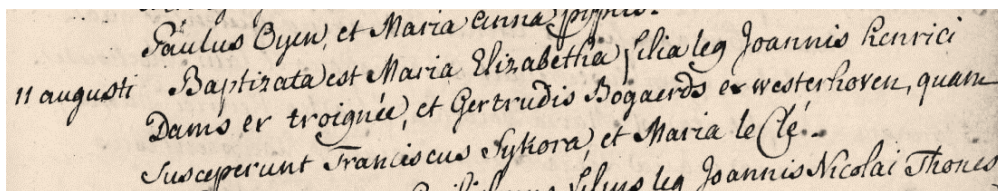 Paulus Oyen, et Maria Anna
11 augusti Baptizata est Maria Elizabetha filia leg Joannis henrici
Dams ex troignée, et Gertrudis Bogaerds ex westerhoven, quam
susceperunt Franciscus Sykora, et Maria le Clé.
filius leg Joannis Nicolai Thones